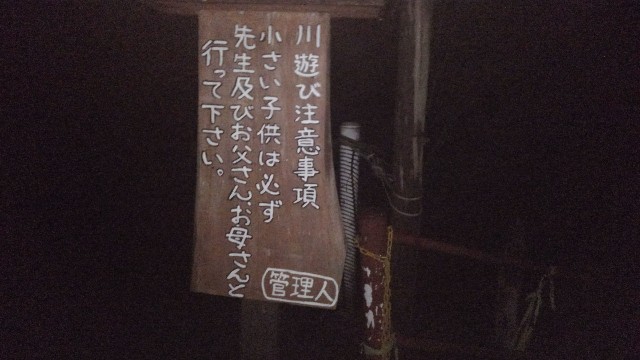 川遊び注意事項
小さい子供は必ず
先生及びお父さん、お母さんと
行って下さい。
管理人